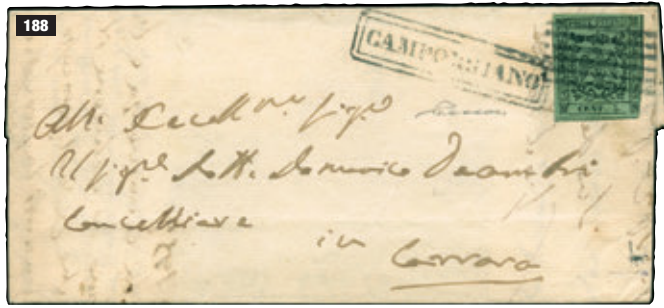 188
CAMPORGIANO
CENT. 5
All' Eccell.mo Sig.re
Il Sig.re Dott. Domenico
Cancelliere
in
Carrara